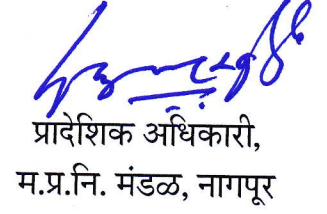 प्रादेशिक अधिकारी,
म.प्र.नि. मंडळ, नागपूर